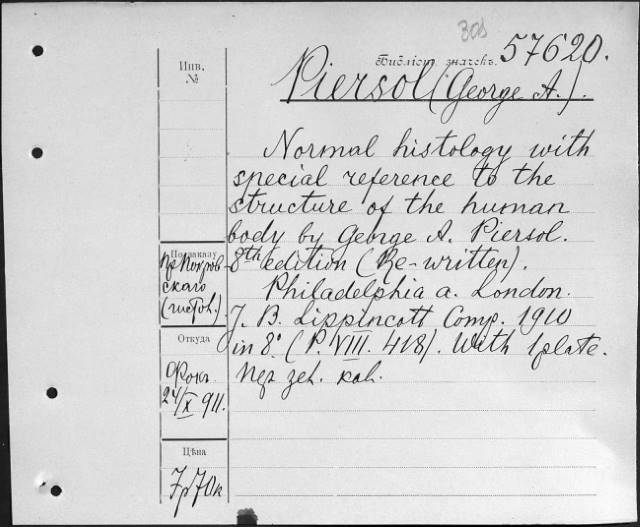 305
Библіот. значекъ. 57620.
Piersol (George A.).
Инв.
№
Normal histology with
special reference to the
structure of the human
body by George A. Piersol.
8th edition (Re-written).
Philadelphia a. London.
J. B. Lippincott Comp. 1910
in 8°. (P. VIII. 418). With 1 plate.
По заказу
пр. Покров-
скаго
(гистол.)
Откуда
24/X 911.
Цѣна
7 р 70 к